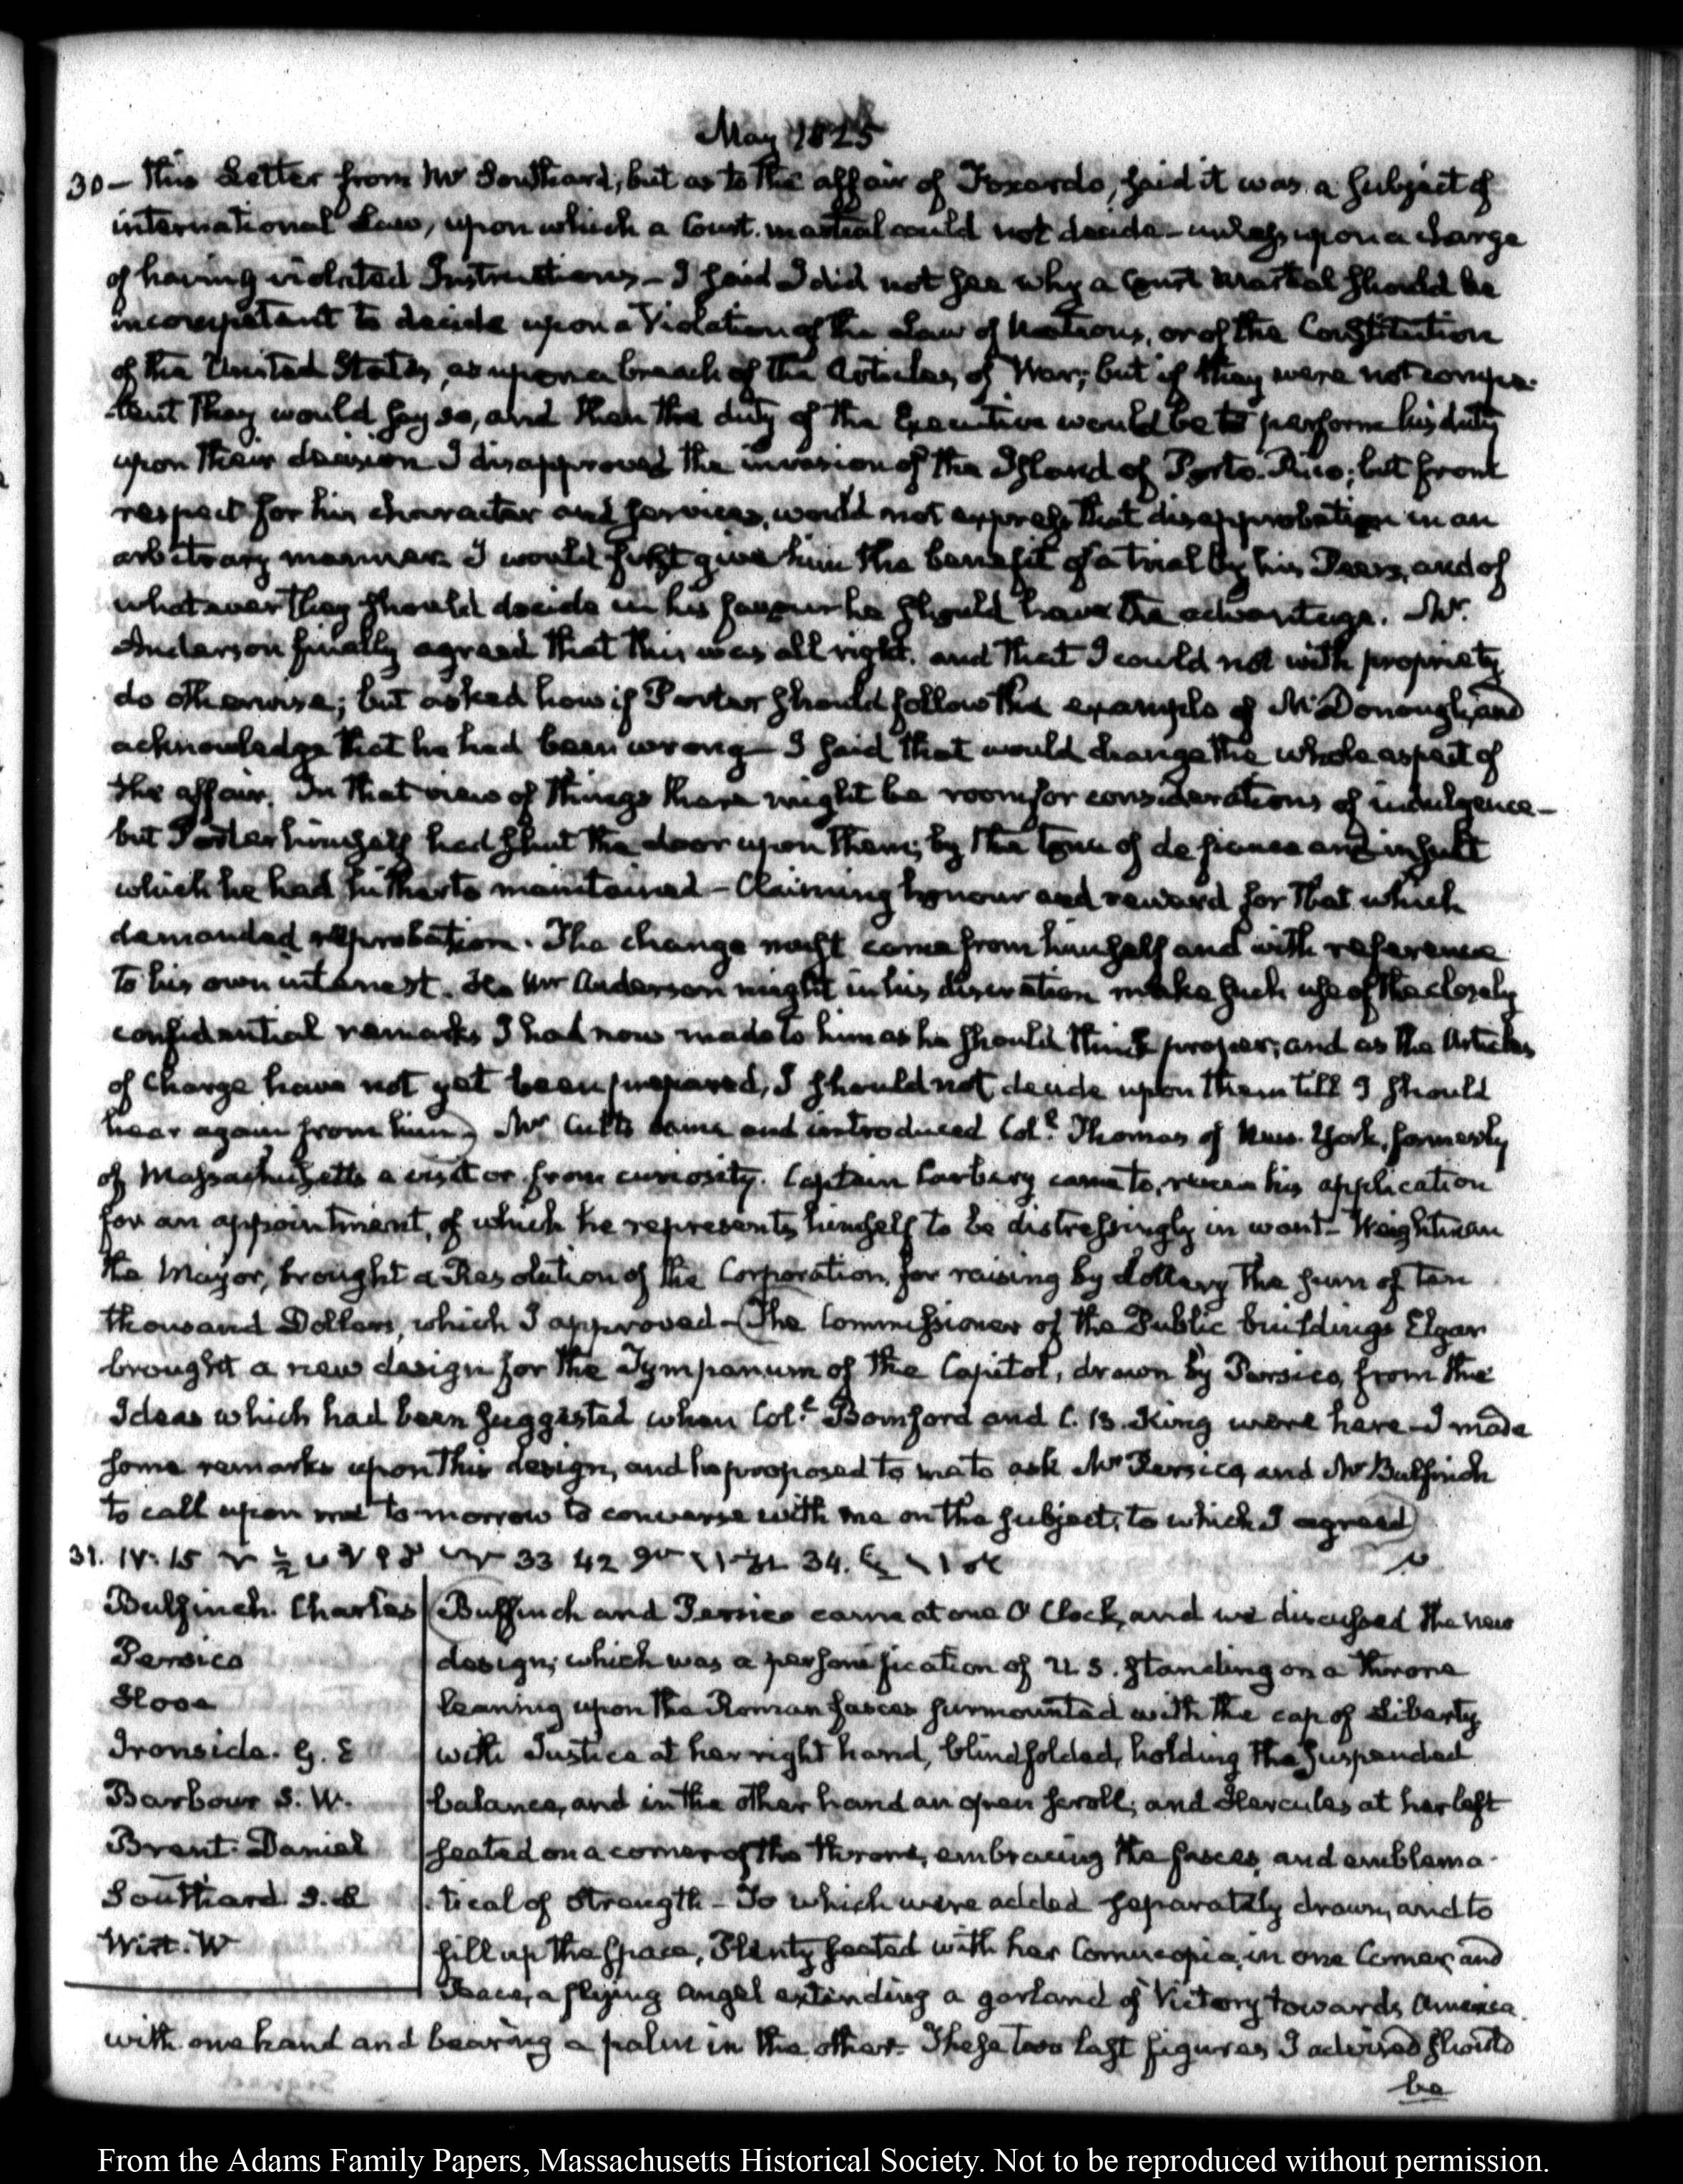 May 1825
30 - this Letter from Mr Southard, but as to the affair of Foxardo, said it was a subject of
international Law, upon which a Court-martial could not decide - unless upon a charge
of having violated Instructions - I said I did not see why a Court Martial should be
incompetent to decide upon a Violation of the Law of Nations, or of the Constitution
of the United States, as upon a breach of the Articles of War; but if they were not compe-
tent they would say so, and then the duty of the Executive would be to perform his duty
upon their decision I disapproved the invasion of the Island of Porto-Rico; but from
respect for his character and services, would not express that disapprobation in an
arbitrary manner. I would first give him the benefit of a trial by his Peers, and of
whatever they should decide in his favour he should have the advantage. Mr.
Anderson finally agreed that this was all right, and that I could not with propriety
do otherwise; but asked how if Porter should follow the example of McDonough, and
acknowledge that he had been wrong - I said that would change the whole aspect of
the affair. In that view of things there might be room for considerations of indulgence -
but Porter himself had shut the door upon them, by the tone of defiance and insult
which he had hitherto maintained - Claiming honour and reward for that which
demanded reprobation. The change must come from himself and with reference
to his own interest. He Mr Anderson might in his discretion make such use of the closely
confidential remarks I had now made to him as he should think proper; and as the Articles
of Charge have not yet been prepared, I should not decide upon them till I should
hear again from him) Mr Cutts came and introduced Coll. Thomas of New-York, formerly
of Massachusetts a visitor from curiosity. Captain Carbery came to renew his application
for an appointment, of which he represents himself to be distressingly in want - Weightman
the Mayor, brought a Resolution of the Corporation, for raising by dollery the sum of ten
thousand Dollars, which I approved - (The Commissioner of the Public buildings Elgar
brought a new design for the Tympanum of the Capitol, drawn by Persico, from the
Ideas which had been suggested when Coll. Bomford and C. B. King were here - I made
some remarks upon this design, and he proposed to me to ask Mr Persico, and Mr Bulfinch
to call upon me to-morrow to converse with me on the subject, to which I agreed)
31. IV: 15 33 42 34.
Bulfinch. Charles
Persico
Hove
Ironside. G. E
Barbour S. W.
Brent. Daniel
Southard S. L
Wirt. W
(Bulfinch and Persico came at one O'Clock, and we discussed the new
design; which was a personification of U S. standing on a throne
leaning upon the Roman fasces surmounted with the cap of Liberty
with Justice at her right hand, blindfolded, holding the suspended
balance, and in the other hand an open scroll; and Hercules at her left
seated on a corner of the throne, embracing the fasces, and emblema-
tical of strength - To which were added separately drawn, and to
fill up the space, Plenty seated with her Cornucopia, in one Corner, and
Peace, a flying Angel extending a garland of Victory towards America
with one hand and bearing a palm in the other. These two last figures I advised should
be
From the Adams Family Papers, Massachusetts Historical Society. Not to be reproduced without permission.